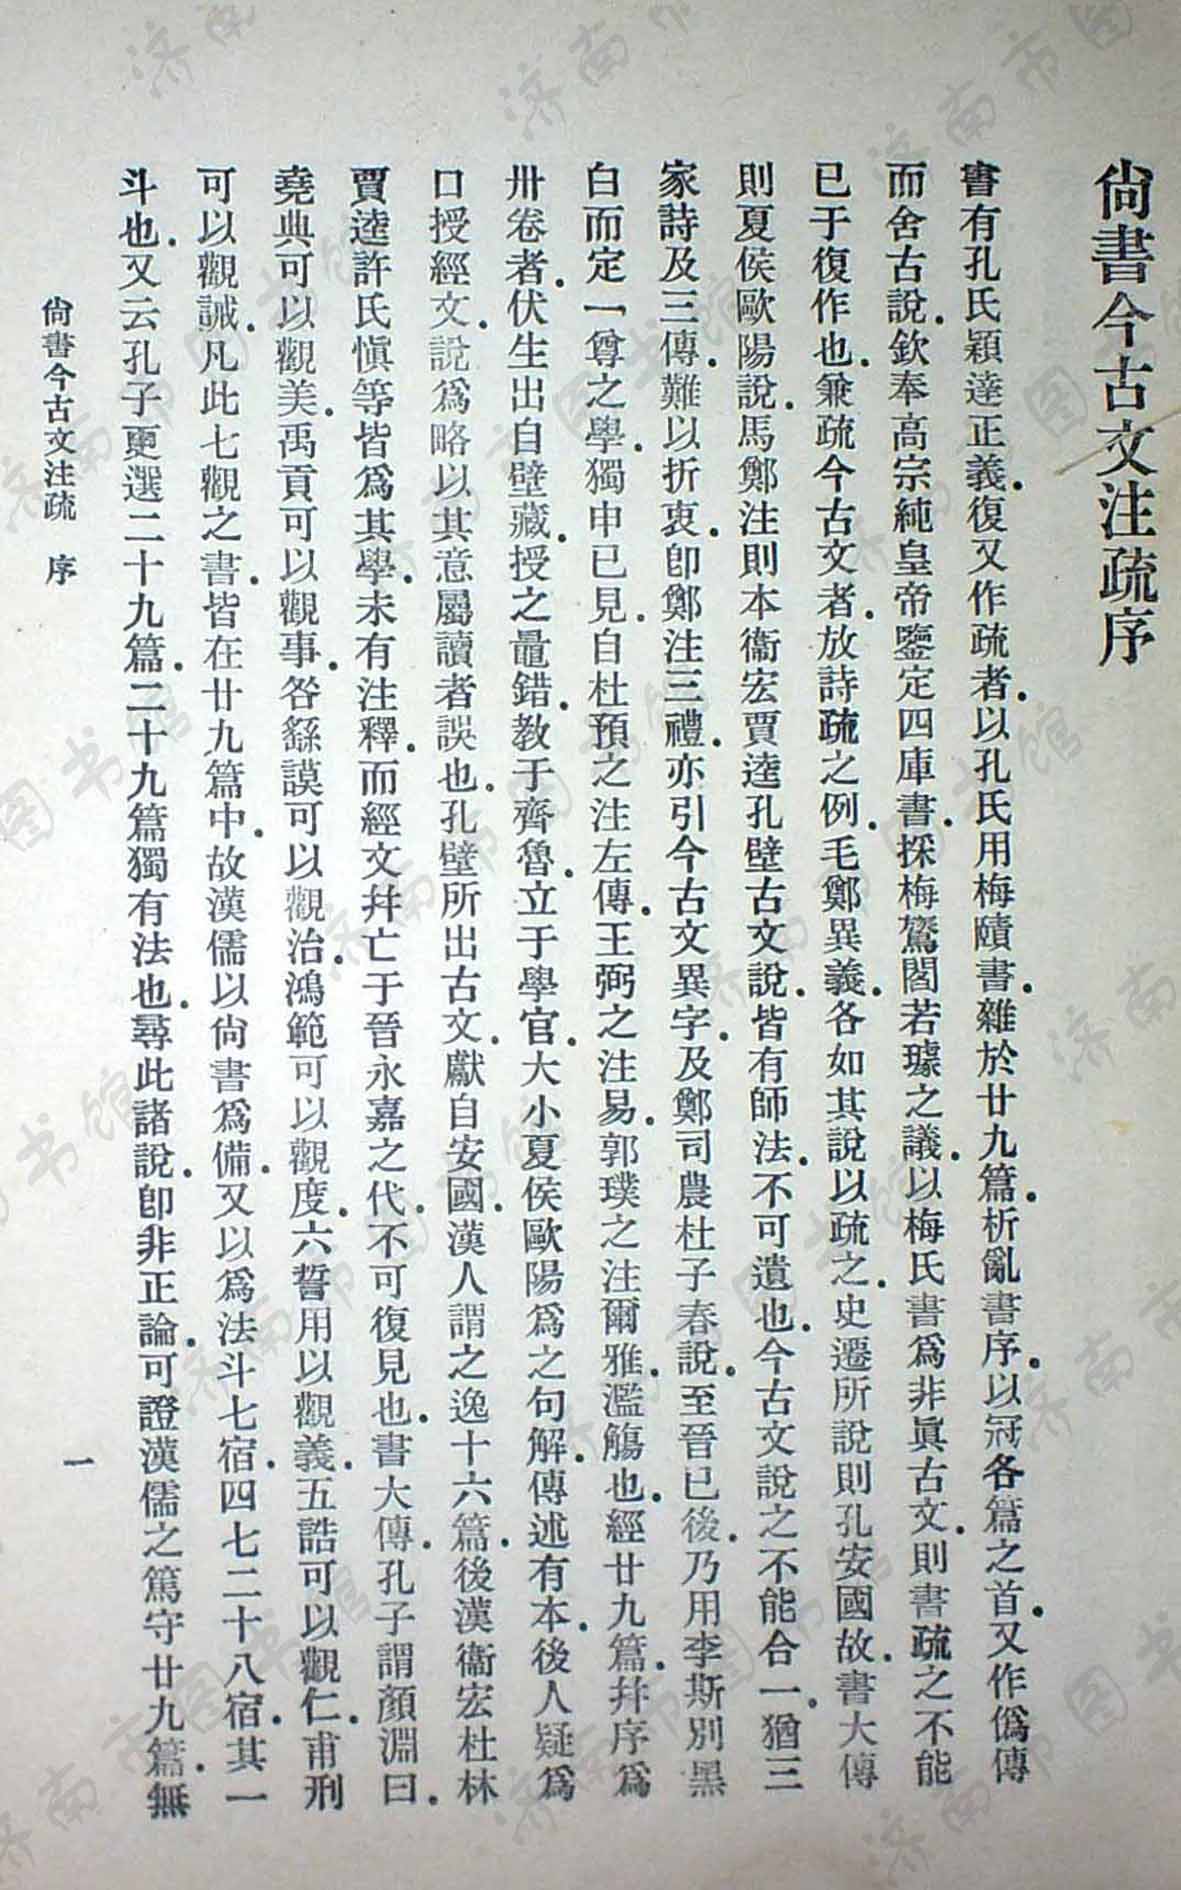 尙書今古文注疏序
書有孔氏穎達正義.復又作疏者.以孔氏用梅賾書.雜於廿九篇.析亂書序.以冠各篇之首.又作僞傳
而舍古說.欽奉高宗純皇帝鑒定四庫書.採梅鷟閻若璩之議.以梅氏書爲非眞古文.則書疏之不能
已于復作也.兼疏今古文者.放詩疏之例.毛鄭異義.各如其說以疏之.史遷所說則孔安國故.書大傳
則夏侯歐陽說.馬鄭注則本衞宏賈逵孔壁古文說.皆有師法.不可遺也.今古文說之不能合一.猶三
家詩及三傳.難以折衷.卽鄭注三禮.亦引今古文異字.及鄭司農杜子春說.至晉已後.乃用李斯別黑
白而定一尊之學.獨申已見.自杜預之注左傳.王弼之注易.郭璞之注爾雅.濫觴也.經廿九篇.幷序爲
卅卷者.伏生出自壁藏.授之鼂錯.教于齊魯.立于學官.大小夏侯歐陽爲之句解.傳述有本.後人疑爲
口授經文.說爲略以其意屬讀者誤也.孔壁所出古文.獻自安國.漢人謂之逸十六篇.後漢衞宏杜林
賈逵許氏愼等皆爲其學.未有注釋.而經文幷亡于晉永嘉之代.不可復見也.書大傳.孔子謂顏淵曰.
堯典可以觀美.禹貢可以觀事.咎繇謨可以觀治.鴻範可以觀度.六誓用以觀義.五誥可以觀仁.甫刑
可以觀誡.凡此七觀之書.皆在廿九篇中.故漢儒以尙書爲備.又以爲法斗七宿.四七二十八宿.其一
斗也.又云孔子更選二十九篇.二十九篇獨有法也.尋此諸說.卽非正論.可證漢儒之篤守廿九篇.無
尙書今古文注疏 序
一
济南市图书馆